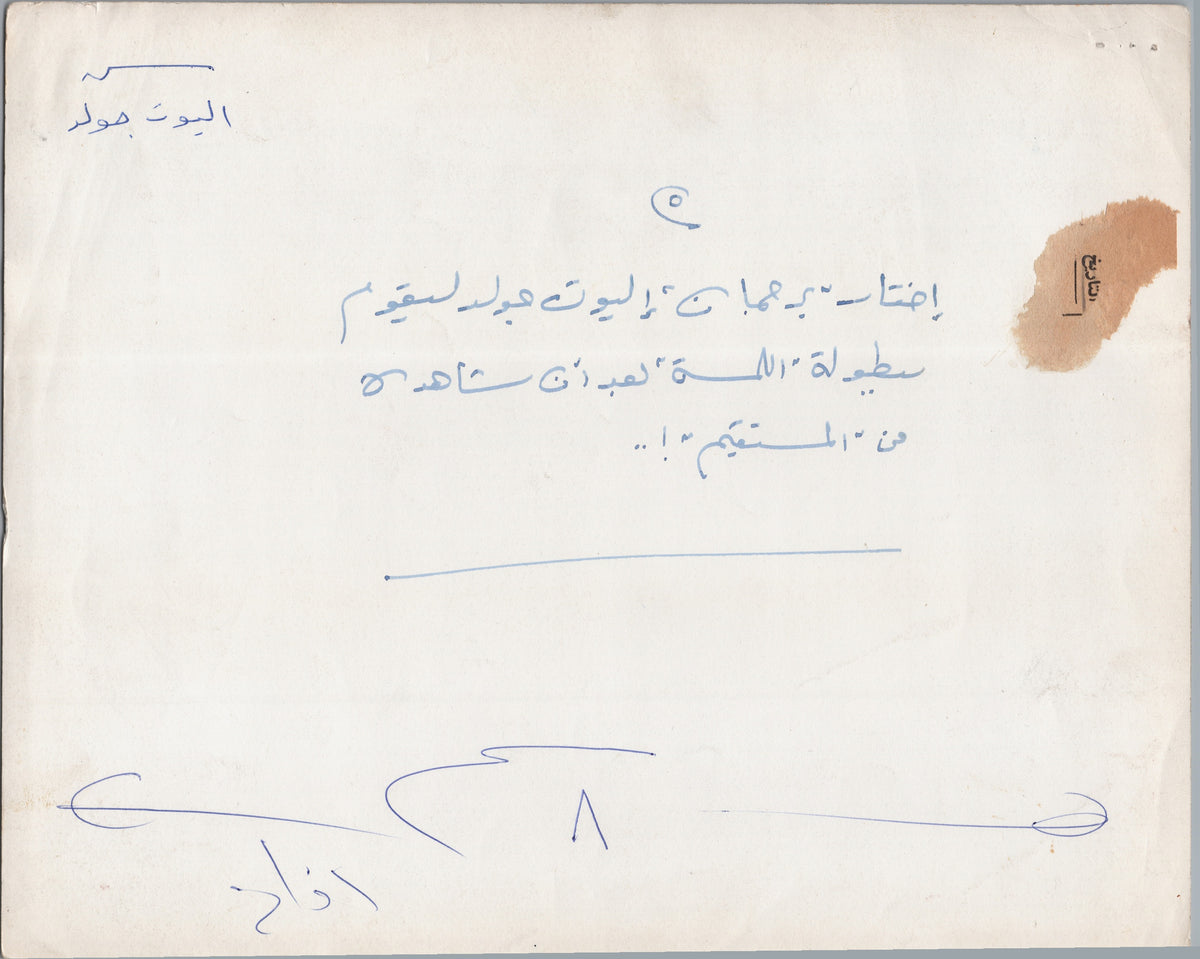 اليوت جولد
٥
إختار "برجمان" إليوت جولد ليقوم
ببطولة "اللمسة" بعد أن شاهده
من "المستقيم" !..
التاريخ
٨